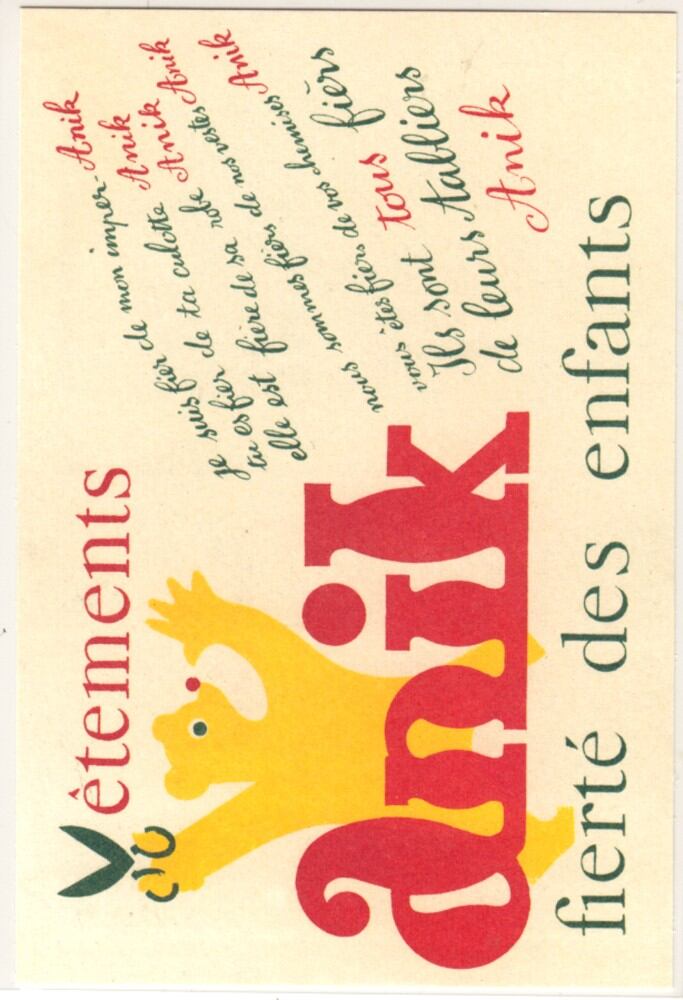 Vêtements
anik
fierté des enfants
je suis fier de mon imper - Anik
tu es fier de ta culotte Anik
elle est fière de sa robe Anik
nous sommes fiers de nos vestes Anik
vous êtes fiers de vos chemises Anik
Ils sont tous fiers
de leurs tabliers
Anik